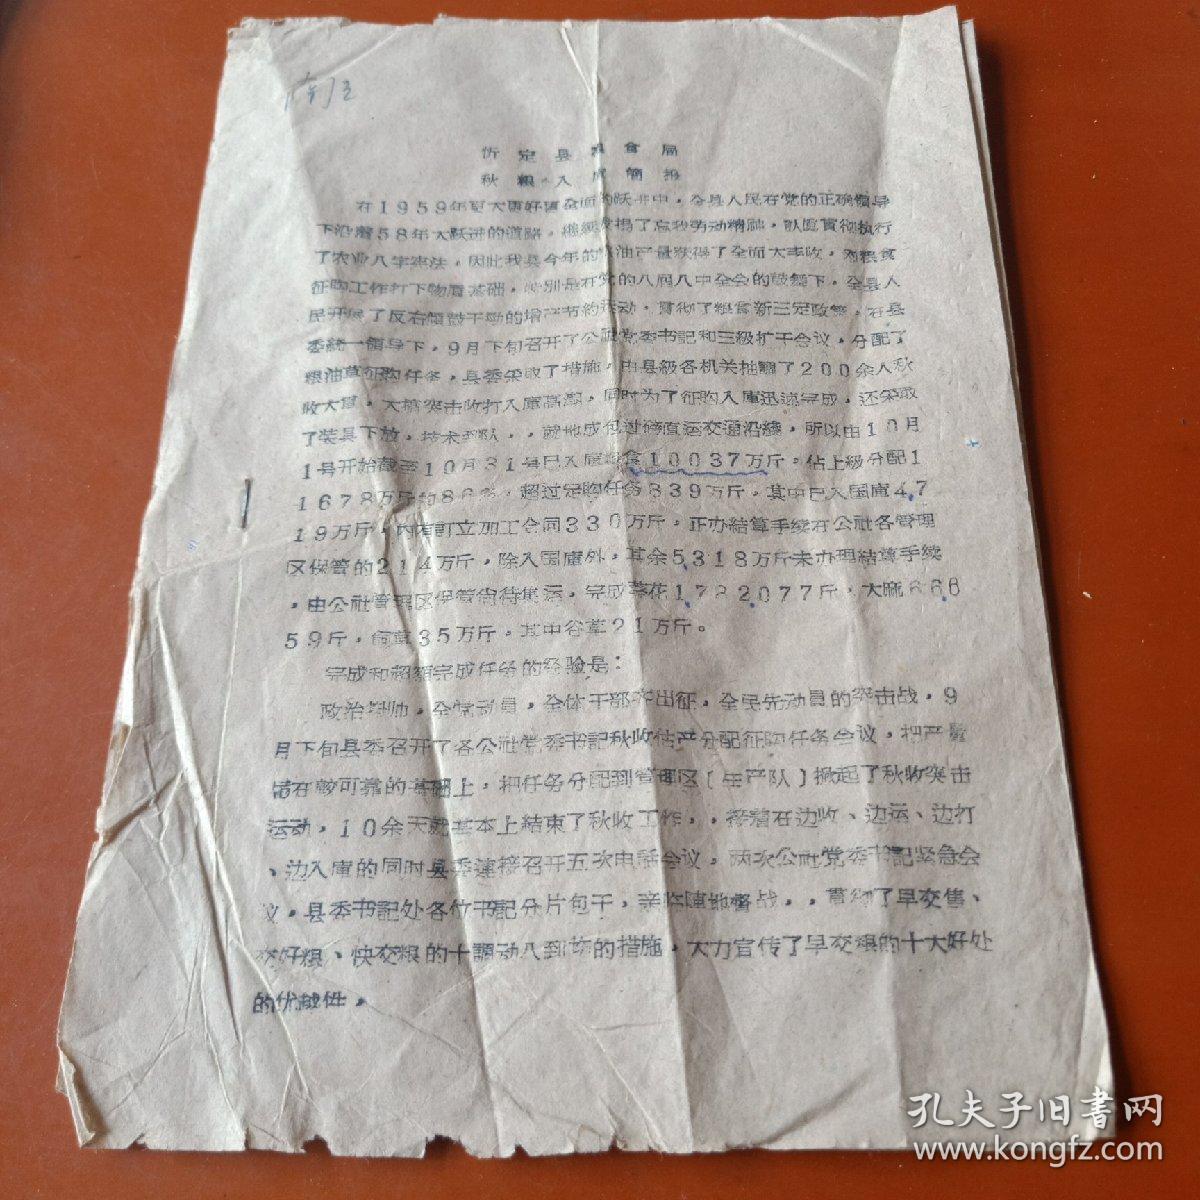 忻定县粮食局
秋粮入库简报
在1959年更大更好更全面的跃进中，全县人民在党的正确领导
下沿着58年大跃进的道路，继续发揚了忘我劳动精神，认眞貫彻执行
了农业八字宪法，因此我县今年的粮油产量获得了全面大丰收，为粮食
征购工作打下物质基础，特别是在党的八届八中全会的鼓舞下，全县人
民开展了反右傾鼓干勁的增产节約运动，貫彻了粮食新三定政策，在县
委統一領导下，9月下旬召开了公社党委书記和三級扩干会议，分配了
粮油草征购任务，县委采取了措施，由县級各机关抽調了200余人秋
收大軍，大搞突击收打入庫高潮，同时为了征购入庫迅速完成，还采取
了装具下放，技术到队，，就地成包过磅直运交通沿綫，所以由10月
1号开始截至10月31号已入庫粮食10037万斤，佔上級分配1
1678万斤的86%，超过定购任务839万斤，其中已入国庫4,7
19万斤，内有訂立加工合同330万斤，正办結算手续在公社各管理
区保管的214万斤，除入国庫外，其余5,318万斤未办理結算手续
，由公社管理区保管尙待集运，完成葵花1,782,077斤，大麻66,6
59斤，飼草35万斤，其中谷草21万斤。
完成和超額完成任务的经验是：
政治挂帅，全党动員，全体干部齐出征，全民先动員的突击战，9
月下旬县委召开了各公社党委书記秋收估产分配征购任务会议，把产量
落在較可靠的基础上，把任务分配到管理区〔生产队〕掀起了秋收突击
运动，10余天就基本上結束了秋收工作，，接着在边收、边运、边打
、边入庫的同时县委連接召开五次电話会议，两次公社党委书記紧急会
议，县委书記处各位书記分片包干，亲临陣地督战，，貫彻了早交售、
交好粮、快交粮的十調动八到塲的措施，大力宣传了早交粮的十大好处
的优越性。
孔夫子旧书网
www.kongfz.com